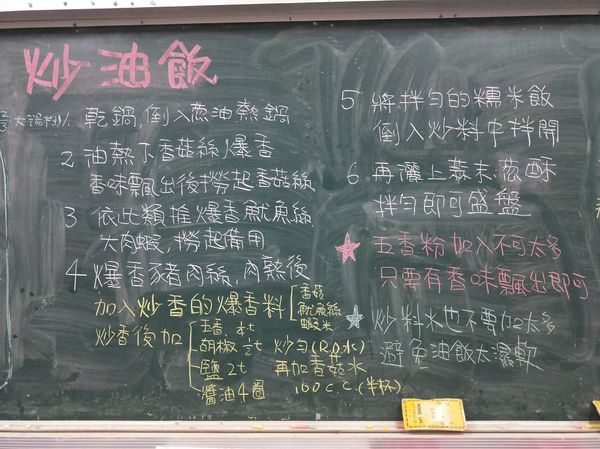 炒油飯
1. 乾鍋,倒入葱油熱鍋
2 油熱下香菇絲爆香
香味飄出後撈起香菇絲
3 依此類推爆香魷魚絲
大肉蝦,撈起備用
4 爆香豬肉絲,肉熟後
加入炒香的爆香料
香菇
魷魚絲
蝦米
炒香後加
五香
胡椒 ½t
鹽 2t
醬油4圈
炒勻(R.O.水)
再加香菇水
100 C.C.(半杯)
5 將拌勻的糯米飯
倒入炒料中拌開
6. 再灑上蒜末,蔥酥
拌勻即可盛盤
★ 五香粉加入不可太多
只要有香味飄出即可
★ 炒料水也不要加太多
避免油飯太濕軟